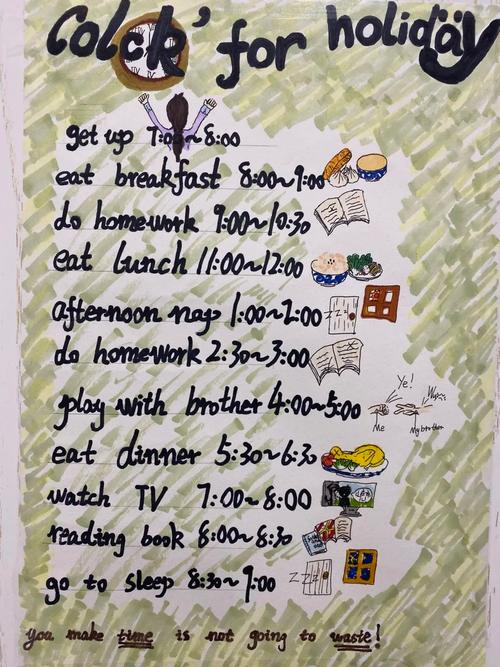 Colck' for holiday
get up 7:00~8:00
eat breakfast 8:00~9:00
do homework 9:00~10:30
eat lunch 11:00~12:00
afternoon nap 1:00~2:00
zzz
do homework 2:30~3:00
Ye!
play with brother 4:00~5:00
Me
My brother
eat dinner 5:30~6:30
watch TV 7:00~8:00
reading book 8:00~8:30
go to sleep 8:30~9:00
ZZZ
you make time is not going to waste!